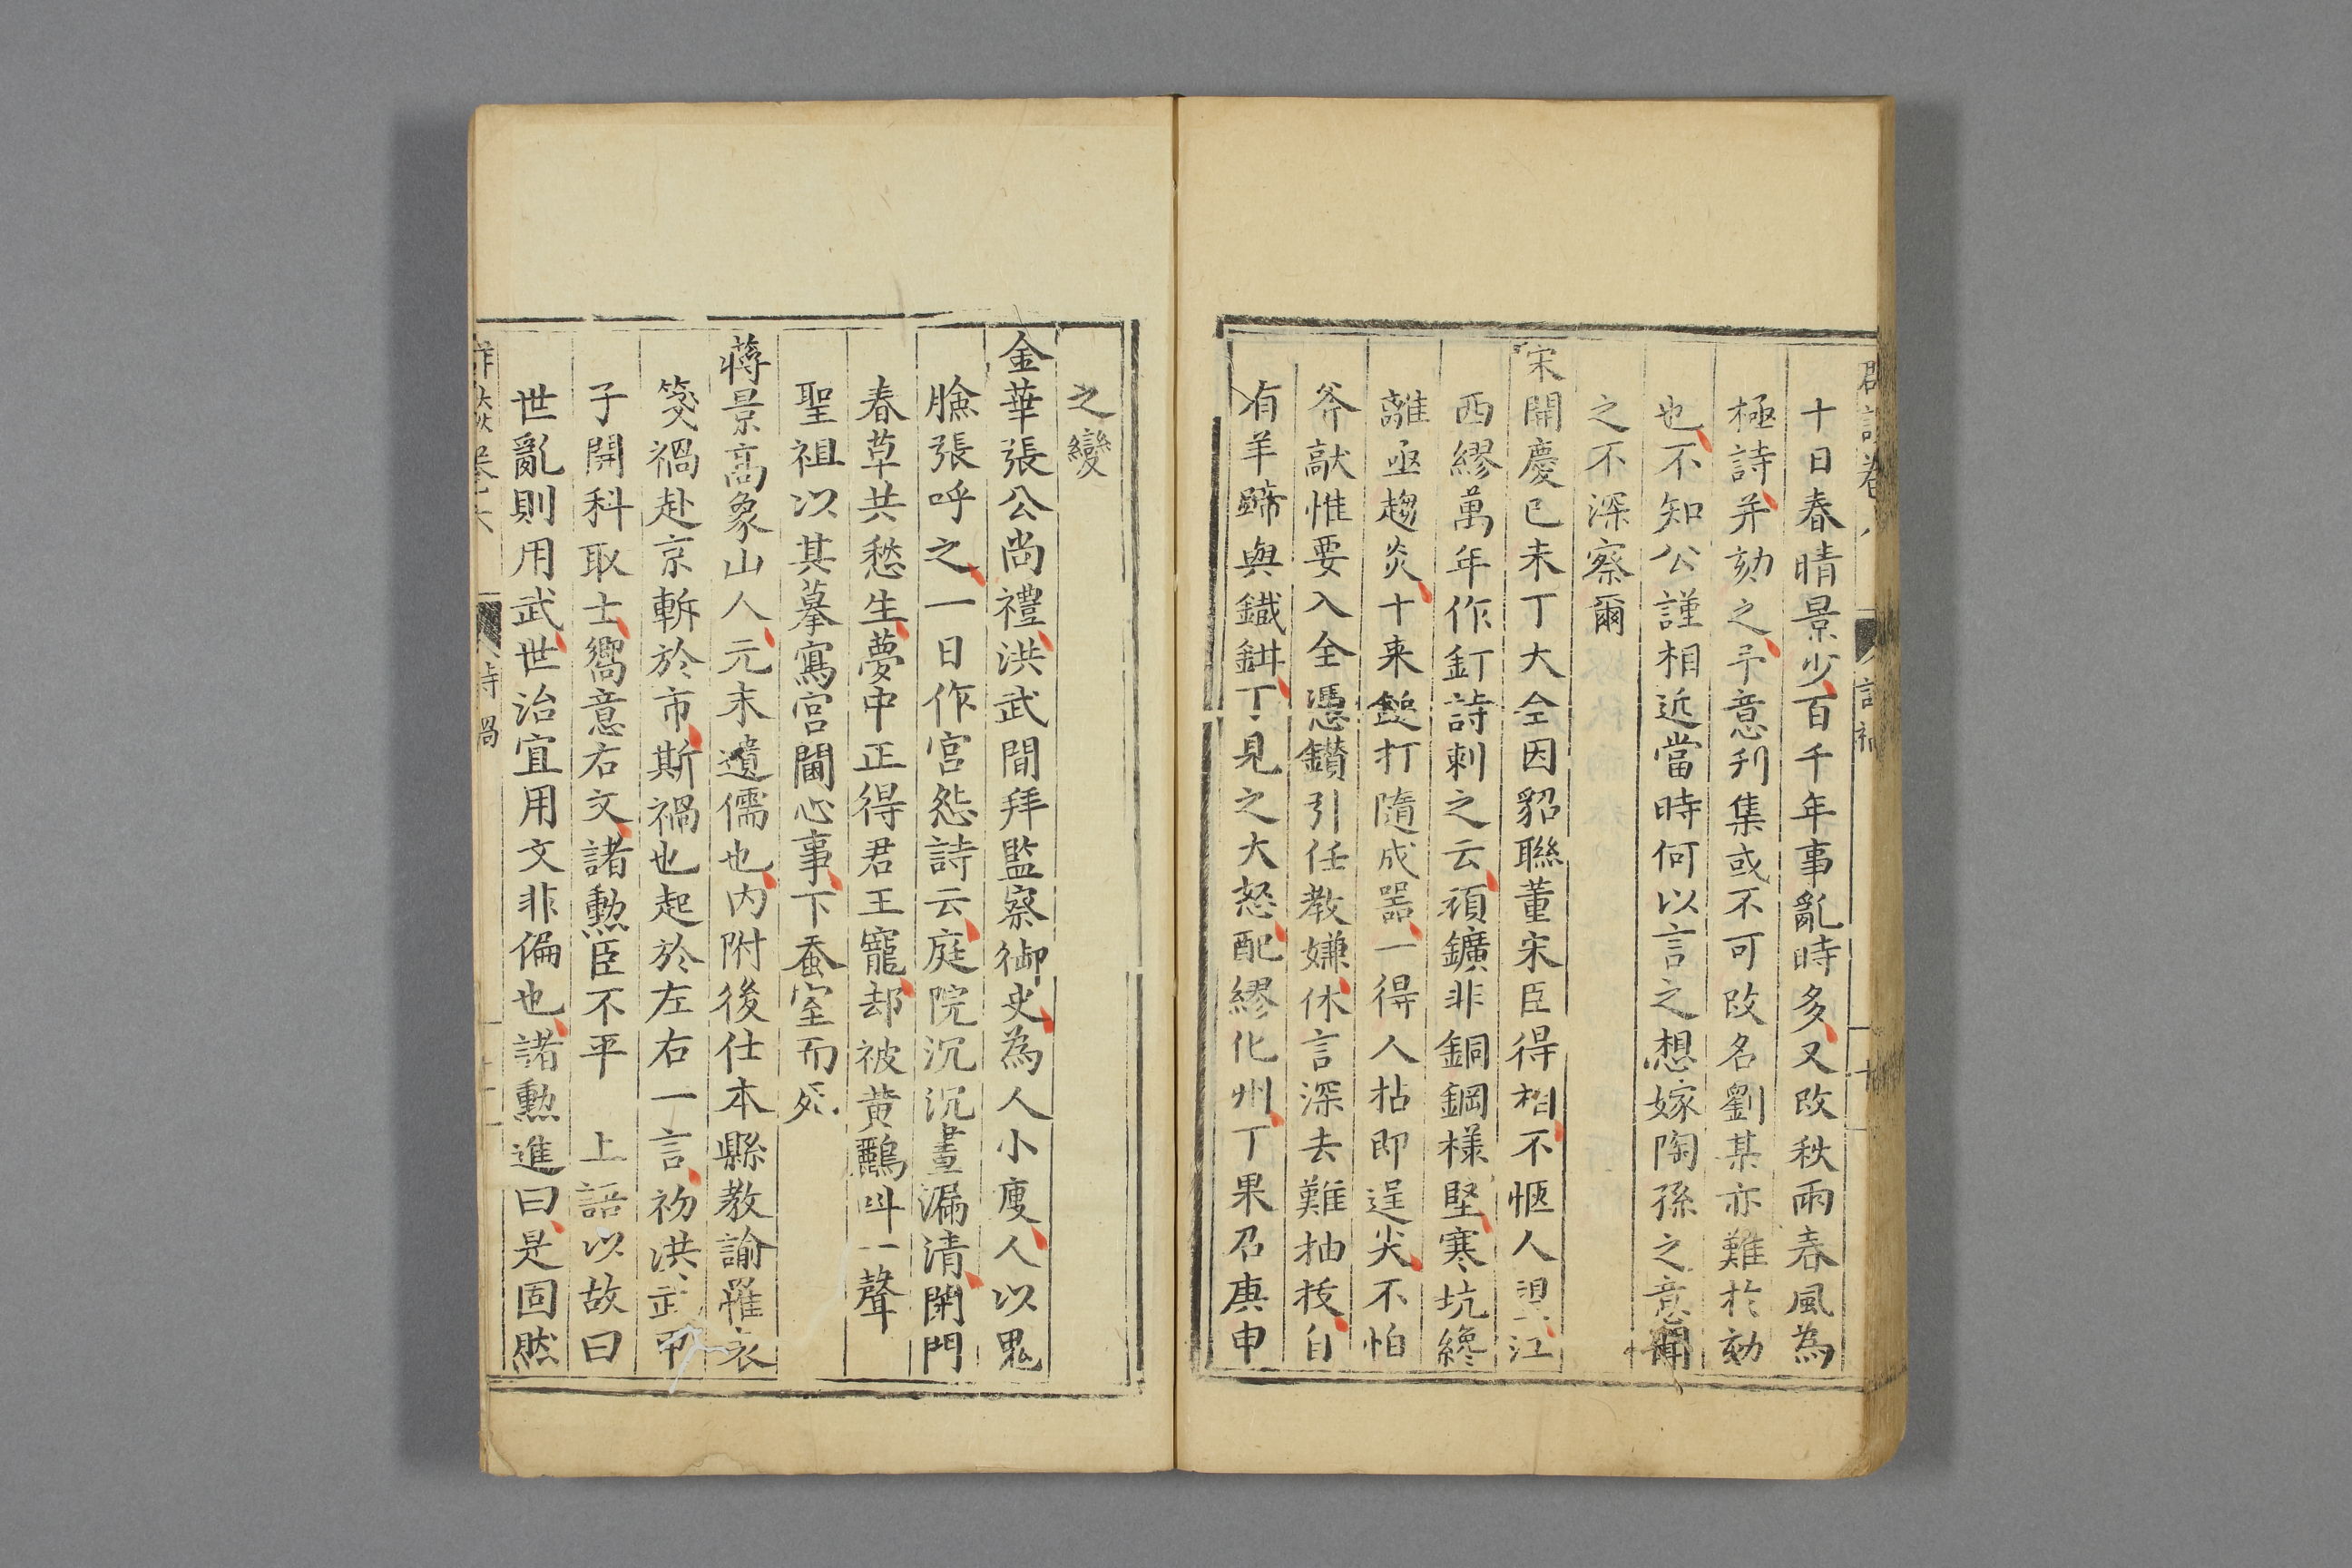 十日春晴景少百千年事亂時多又改秋雨春風為
極詩并劾之予意刋集或不可改名劉某亦難於劾
也不知公謹相近當時何以言之想嫁陶孫之意
之不深察爾
宋開慶已未丁大全因貂聯董宋臣得相不愜人望江
西繆萬年作釘詩刺之云頑鑛非銅鋼樣堅寒坑纔
離亟趨炎十来鎚打隨成器一得人拈即逞尖不怕
斧敲惟要入全憑鑚引任教嫌休言深去難抽扳自
有羊蹄與鐵鉗丁見之大怒配繆化州丁果召庚申
之變
金華張公尚禮洪武間拜監察御史為人小廋人以鬼
臉張呼之一日作宫怨詩云庭院沉沉晝漏清閑門
春草共愁生夢中正得君王寵却被黄鸝呌一聲
聖祖以其摹寫宫閫心事下蚕室而死
蔣景高象山人元末遺儒也内附後仕本縣教諭罹衣
箋禍赴京斬於市斯禍也起於左右一言初洪武甲
子開科取士嚮意右文諸勲臣不平　上語以故曰
世亂則用武世治宜用文非偏也諸勲進曰是固然